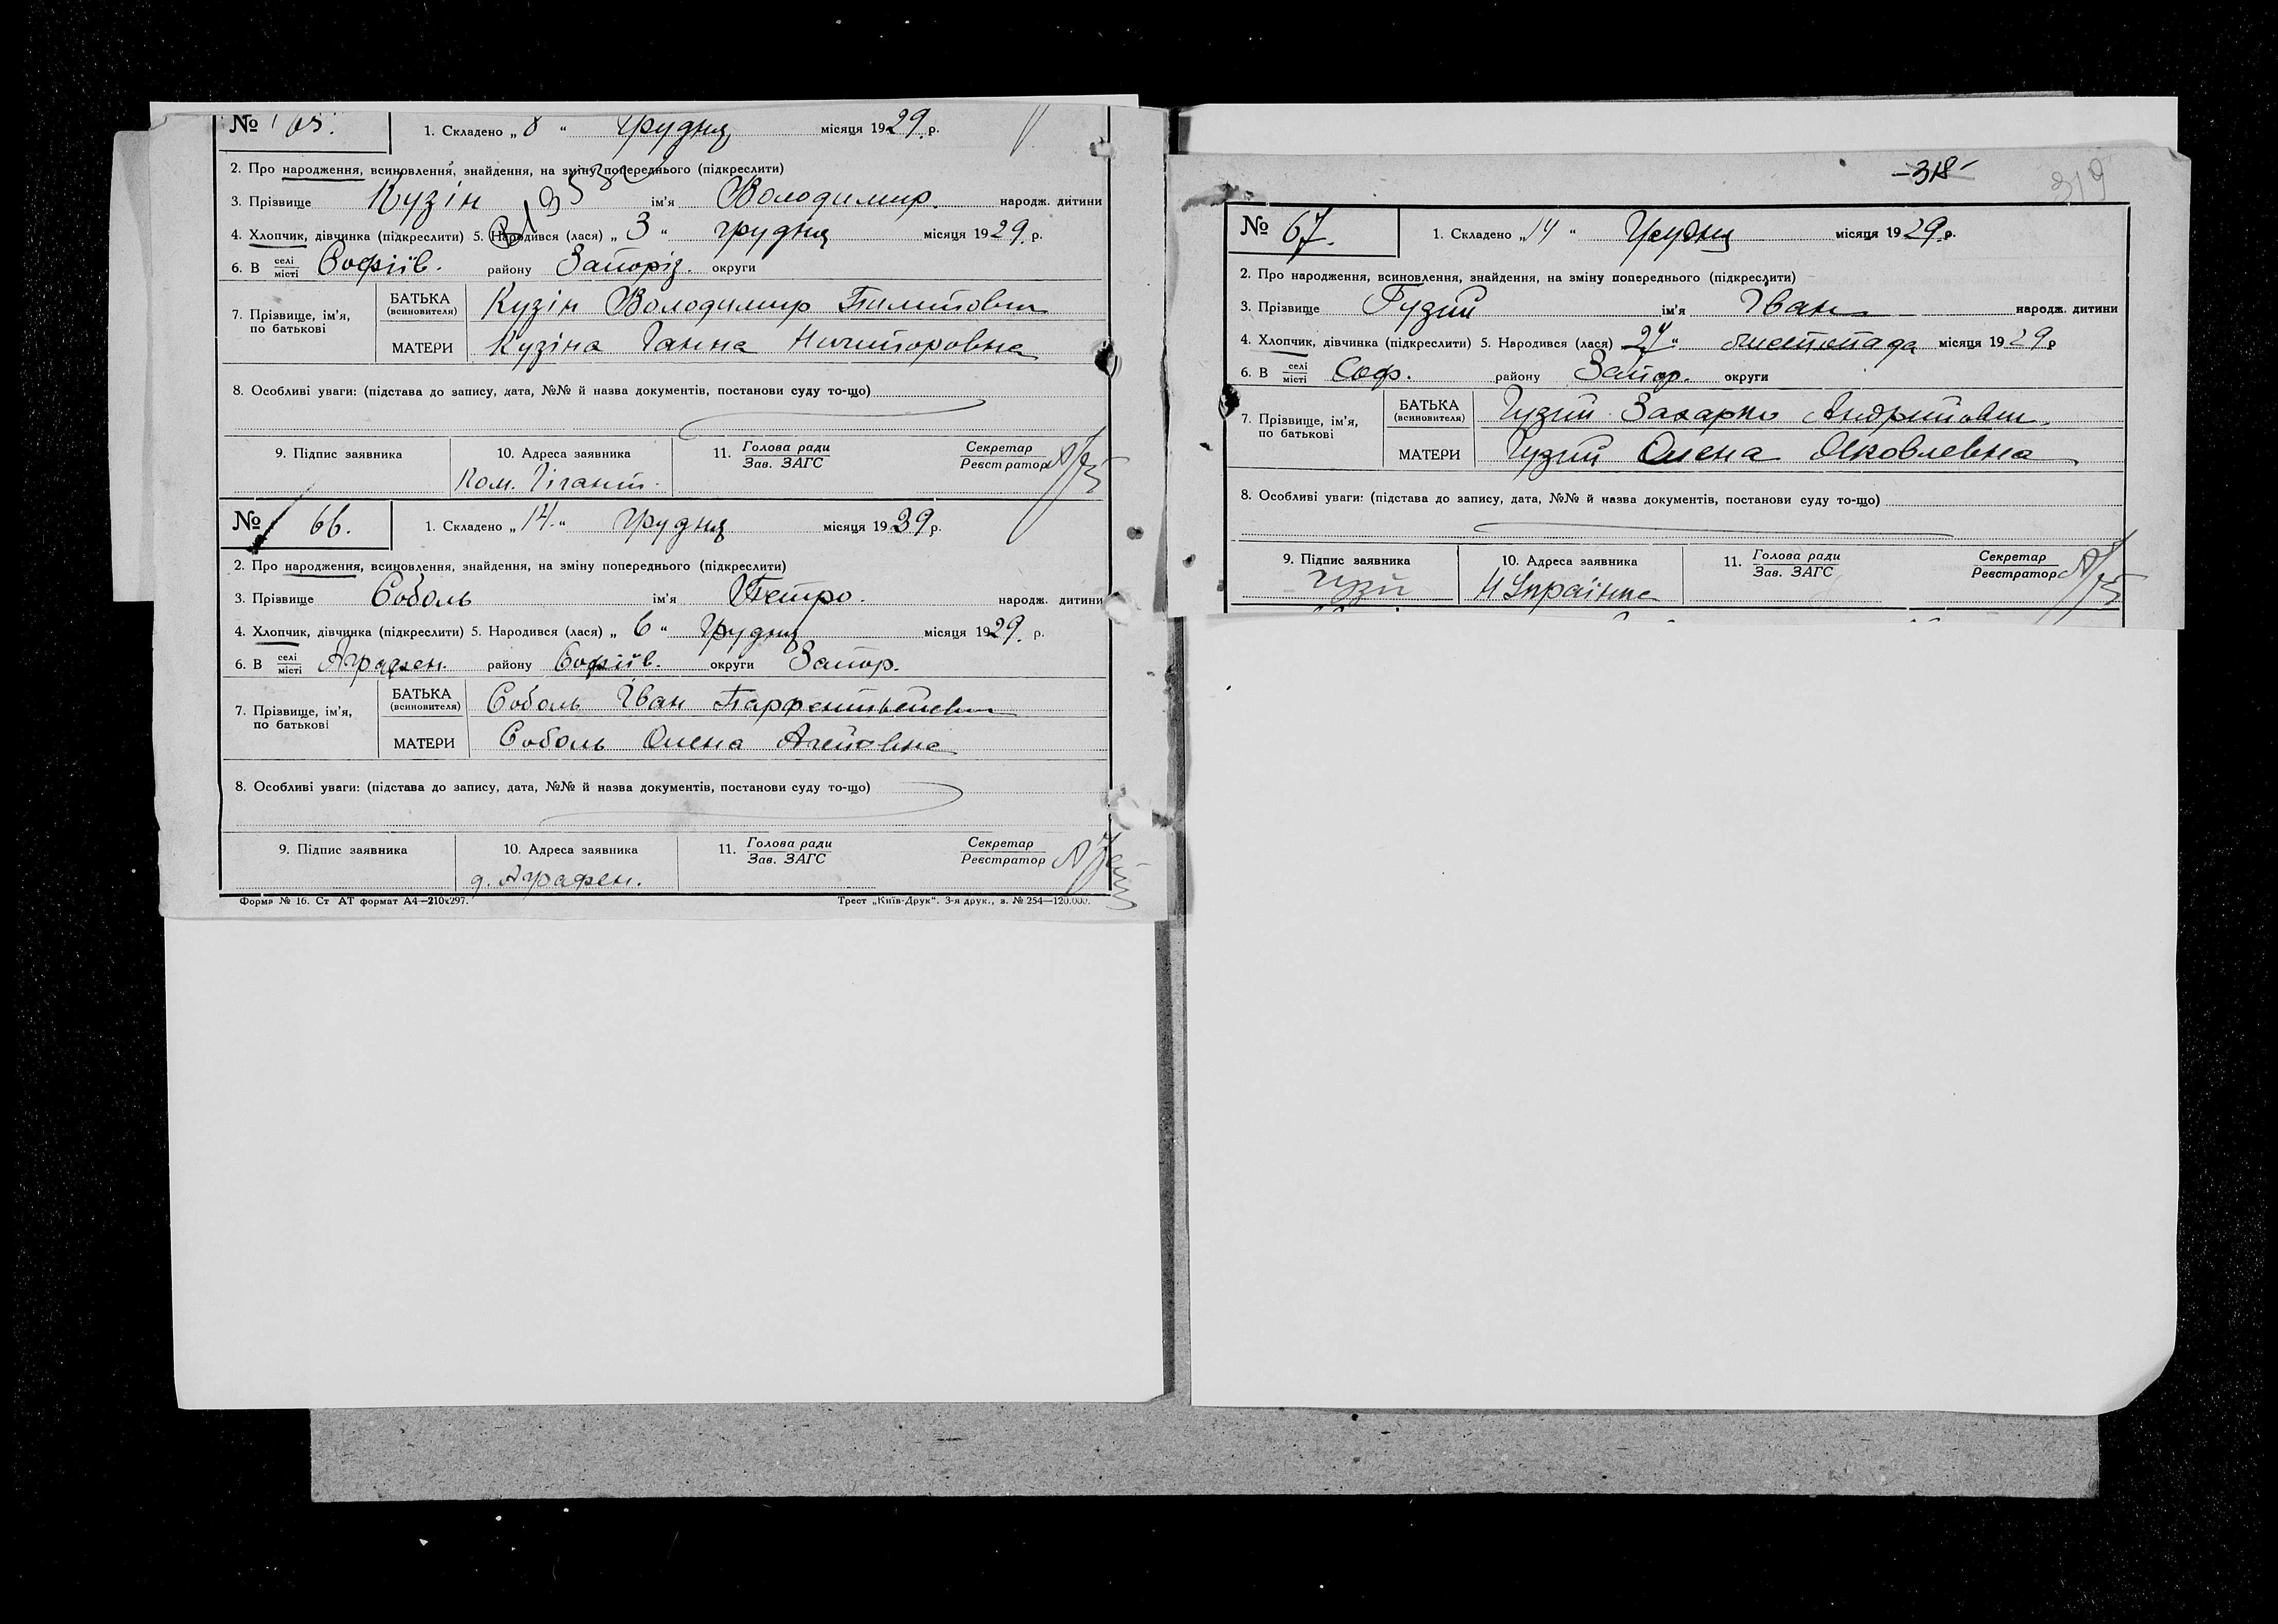 № 65. 1. Складено „ 8 “ Грудня місяця 1929 р.
2. Про народження, всиновлення, знайдення, на зміну попереднього (підкреслити)
3. Прізвище Кузін ім'я Володимир. народж. дитини
4. Хлопчик, дівчинка (підкреслити) 5. Народився (лася) „ 3 “ грудня місяця 1929. р.
6. В селі місті Софіїв. району Запоріз. округи
7. Прізвище, ім'я, по батькові БАТЬКА (всиновителя) Кузін Володимир Пилипович
МАТЕРИ Кузіна Ганна Ничипоровна
8. Особливі уваги: (підстава до запису, дата, №№ й назва документів, постанови суду то-що)
9. Підпис заявника 10. Адреса заявника 11. Голова ради Зав. ЗАГС Секретар Реєстратор
Ком. Гігант.
№ 66. 1. Складено „ 14. “ Грудня місяця 1939 р.
2. Про народження, всиновлення, знайдення, на зміну попереднього (підкреслити)
3. Прізвище Соболь ім'я Петро. народж. дитини
4. Хлопчик, дівчинка (підкреслити) 5. Народився (лася) „ 6 “ Грудня місяця 1929. р.
6. В селі місті Аграфен. району Софіїв. округи Запор.
7. Прізвище, ім'я, по батькові БАТЬКА (всиновителя) Соболь Іван Парфентьевич
МАТЕРИ Соболь Олена
8. Особливі уваги: (підстава до запису, дата, №№ й назва документів, постанови суду то-що)
9. Підпис заявника 10. Адреса заявника 11. Голова ради Зав. ЗАГС Секретар Реєстратор
д. Аграфен.
Форма № 16. Ст АТ формат А4—210х297. Трест „Київ-Друк“. 3-я друк., з. № 254—120.000.
-318-
319
№ 67. 1. Складено „ 14 “ Грудня місяця 1929 р.
2. Про народження, всиновлення, знайдення, на зміну попереднього (підкреслити)
3. Прізвище Гузий ім'я Іван народж. дитини
4. Хлопчик, дівчинка (підкреслити) 5. Народився (лася) 27 “ листопада місяця 1929 р
6. В селі місті Соф. району Запор. округи
7. Прізвище, ім'я, по батькові БАТЬКА (всиновителя) Гузий Захарко Андрійович
МАТЕРИ Гузий Олена Яковлевна
8. Особливі уваги: (підстава до запису, дата, №№ й назва документів, постанови суду то-що)
9. Підпис заявника 10. Адреса заявника 11. Голова ради Зав. ЗАГС Секретар Реєстратор
Гузій Н Українка